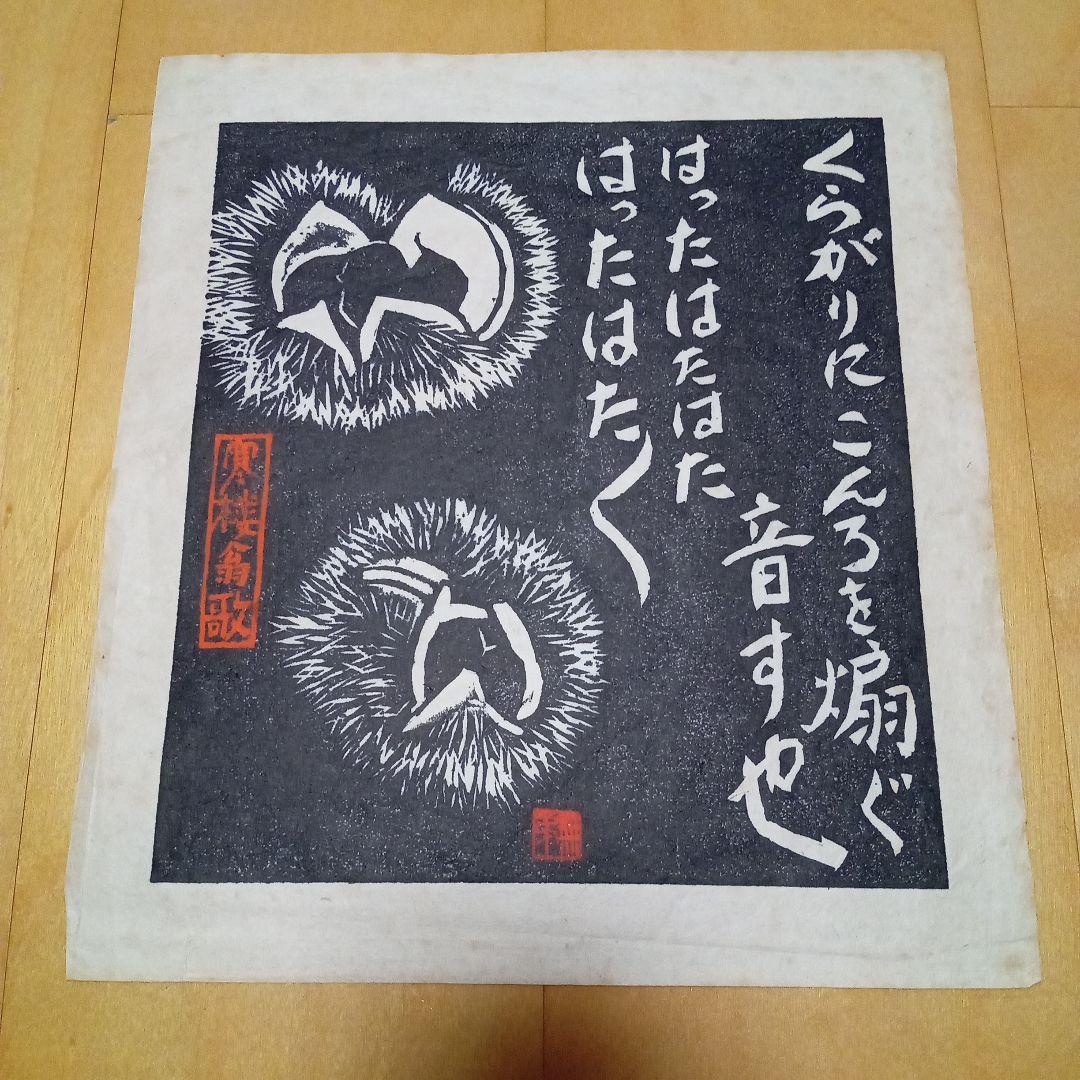 くらがりにこんろを煽ぐ
音す也
はったはたはた
はったはた〱
寒楼翁歌